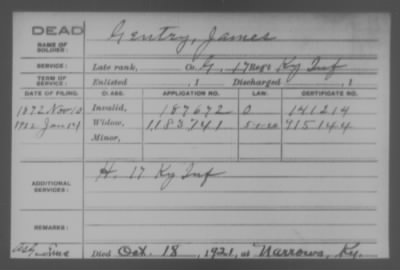 DEAD
NAME OF SOLDIER: Gentry, James
SERVICE: Late rank, Co. G. 17 Reg't Ky Inf
TERM OF SERVICE: Enlisted , 1 Discharged , 1
DATE OF FILING. CLASS. APPLICATION NO. LAW. CERTIFICATE NO.
1872 Nov 12 Invalid, 187672 O 141214
Widow, 1183741 915144
Minor,
ADDITIONAL SERVICES: H. 17 Ky Inf
REMARKS:
Died Oct. 18, 1921, at Narrows, Ky.